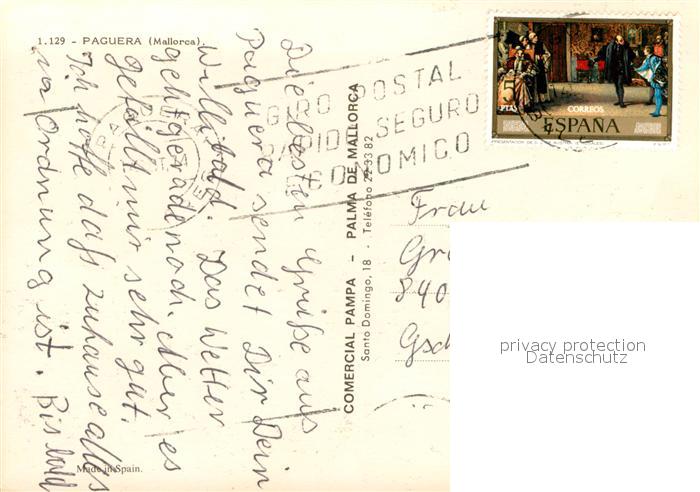 1.129 - PAGUERA (Mallorca).
Die besten Grüße aus
Paguera sendet Dir Dein
Willibald. Das Wetter
geht gerade noch. Aber es
gefällt mir sehr gut.
Ich hoffe daß zuhause alles
in Ordnung ist. Bis bald
Made in Spain.
COMERCIAL PAMPA - PALMA DE MALLORCA
Santo Domingo, 18 - Teléfono 22 33 82
GIRO POSTAL
SEGURO
ECONOMICO
PTAS
CORREOS
ESPAÑA
Frau
Gr
840
Gsch
privacy protection
Datenschutz